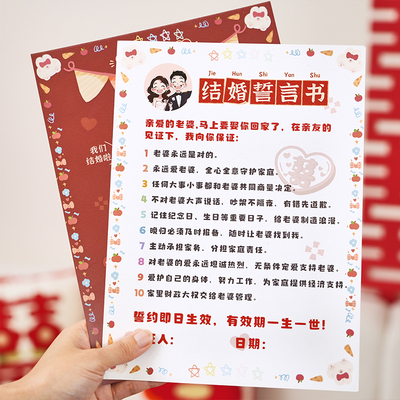 Jie Hun Shi Yan Shu
结婚誓言书
我们
结婚啦
亲爱的老婆,马上要娶你回家了,在亲友的
见证下,我向你保证:
1 老婆永远是对的。
2 永远爱老婆,全心全意守护家庭。
3 任何大事小事都和老婆共同商量决定。
4 不对老婆大声说话,吵架不隔夜,有错先道歉。
5 记住纪念日、生日等重要日子,给老婆制造浪漫。
6 晚归必须及时报备,随时让老婆找到我。
7 主动承担家务,分担家庭责任。
8 对老婆的爱永远坦诚热烈,无条件宠爱支持老婆。
9 爱护自己的身体,努力工作,为家庭提供经济支持。
10 家里财政大权交给老婆管理。
誓约即日生效,有效期一生一世!
人: 日期:
囍